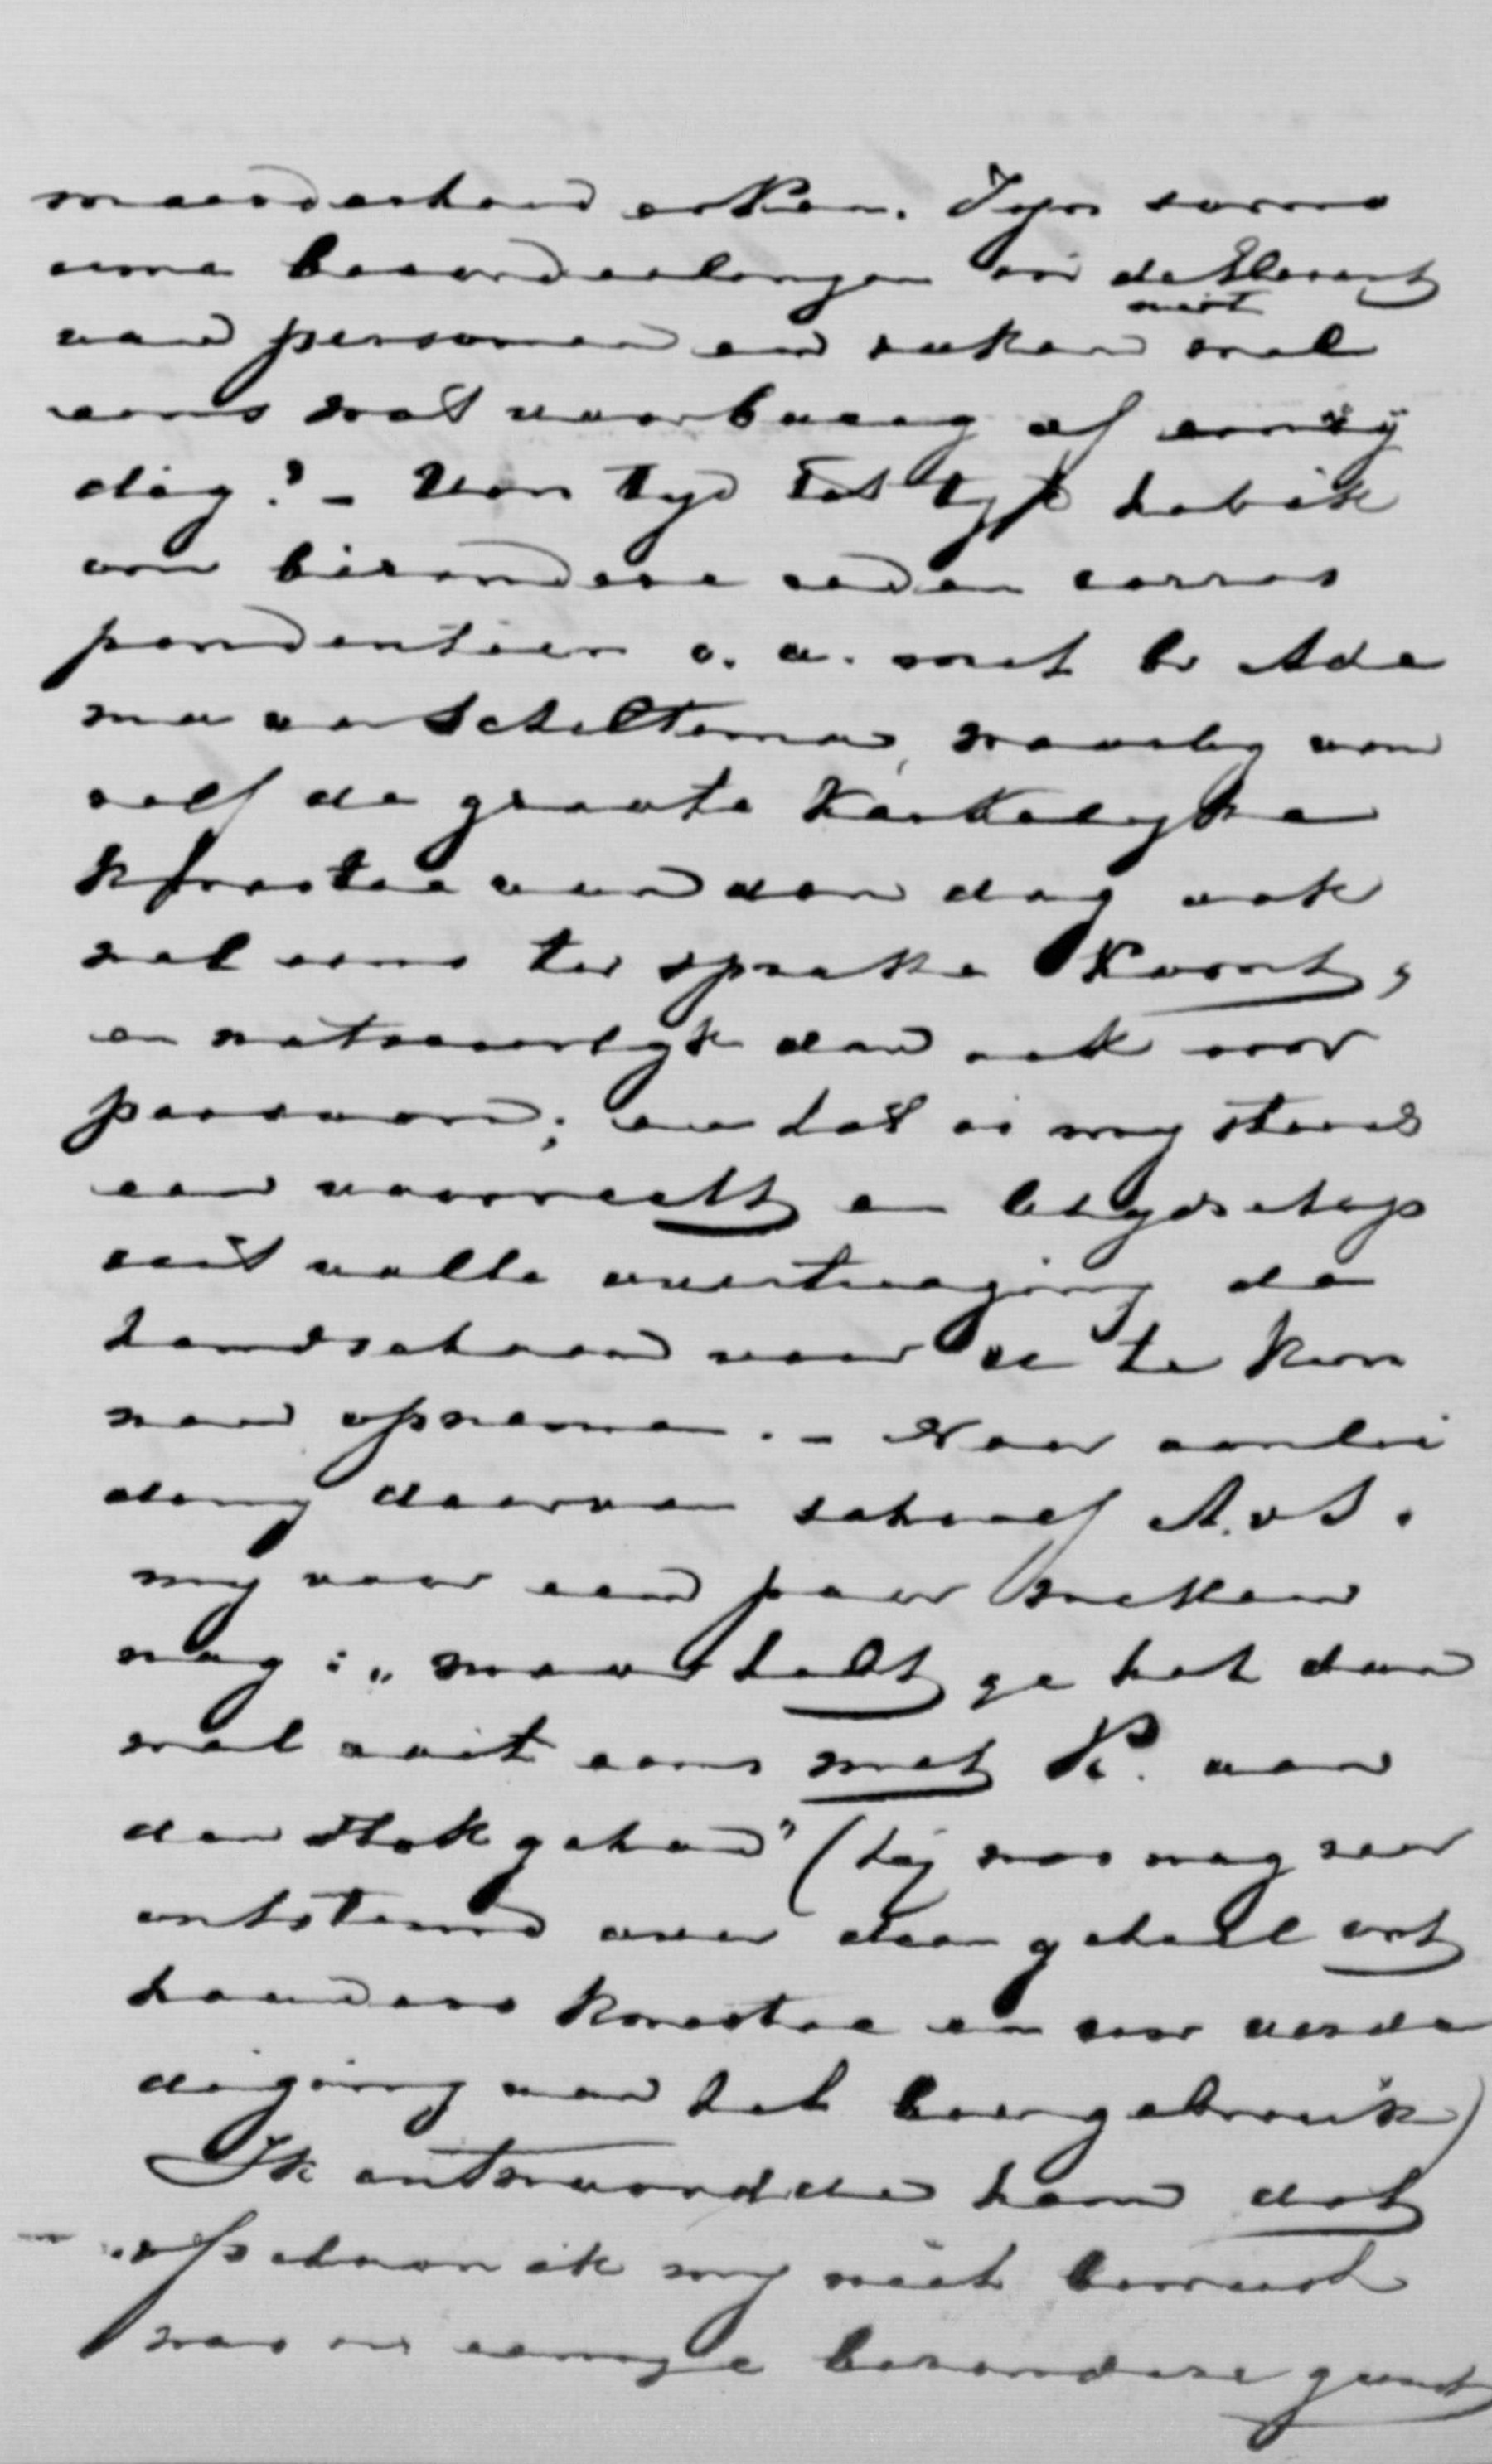 meerderheid erken. Zyn soms
uwe beoordeelingen in de Heraut
van personen en zaken niet wel
eens wat voorbarig of eenzy
dig? - Van tyd tot tyd heb ik
om bizondere reden corres
pondentien o. a. met br Ade
ma van Scheltema, waarby van
zelf de groote Kerkelyke
kwestie van den dag ook
wel eens ter sprake komt,
en natuurlyk dan ook uw
persoon; en het is my steeds
een voorrecht en blydschap
uit volle overtuiging de
handschoen voor u te kun
nen opnemen. - Naar aanlei
ding daarvan schreef A. v S.
my voor een paar weken
nog: „maar hebt ge het dan
wel ooit eens met K. aan
den stok gehad" (hy was nog zeer
ontstemd over den geheel ont
houders kwestie en uw verde
diging van het biergebruik)
Ik antwoordde hem dat
ofschoon ik my niet bewust
was in eenige bezondere gunst